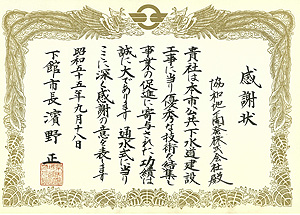 感謝状
協和地下開発株式会社殿
貴社は本市公共下水道建設
工事に当り優秀な技術を結集し
事業の促進に寄与された功績は
誠に大であります 通水式に当り
ここに深く感謝の意を表します
昭和五十五年九月十八日
下館市長 濱野 正